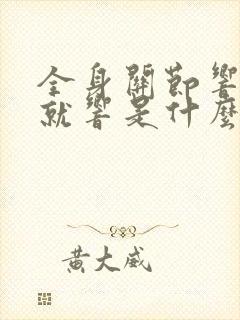 全身關節響
就響是什麼
黃大威